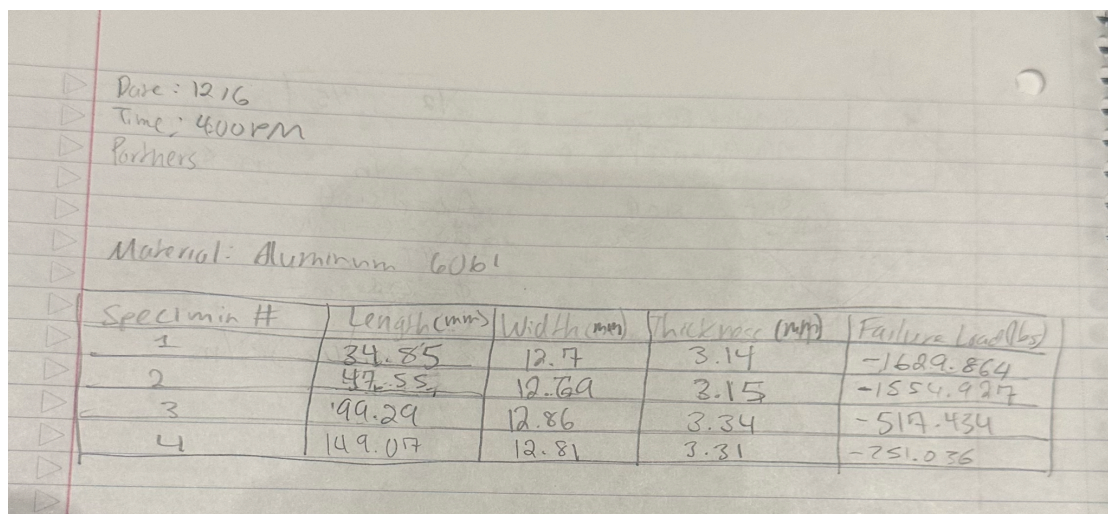 Date: 12/6
Time: 4:00 PM
Partners
Material: Aluminum 6061
Specimin # Length (mm) Width (mm) Thickness (mm) Failure Load (lbs)
1 34.85 12.7 3.14 -1629.864
2 47.55 12.69 3.15 -1554.927
3 99.29 12.86 3.34 -517.434
4 149.07 12.81 3.31 -251.036